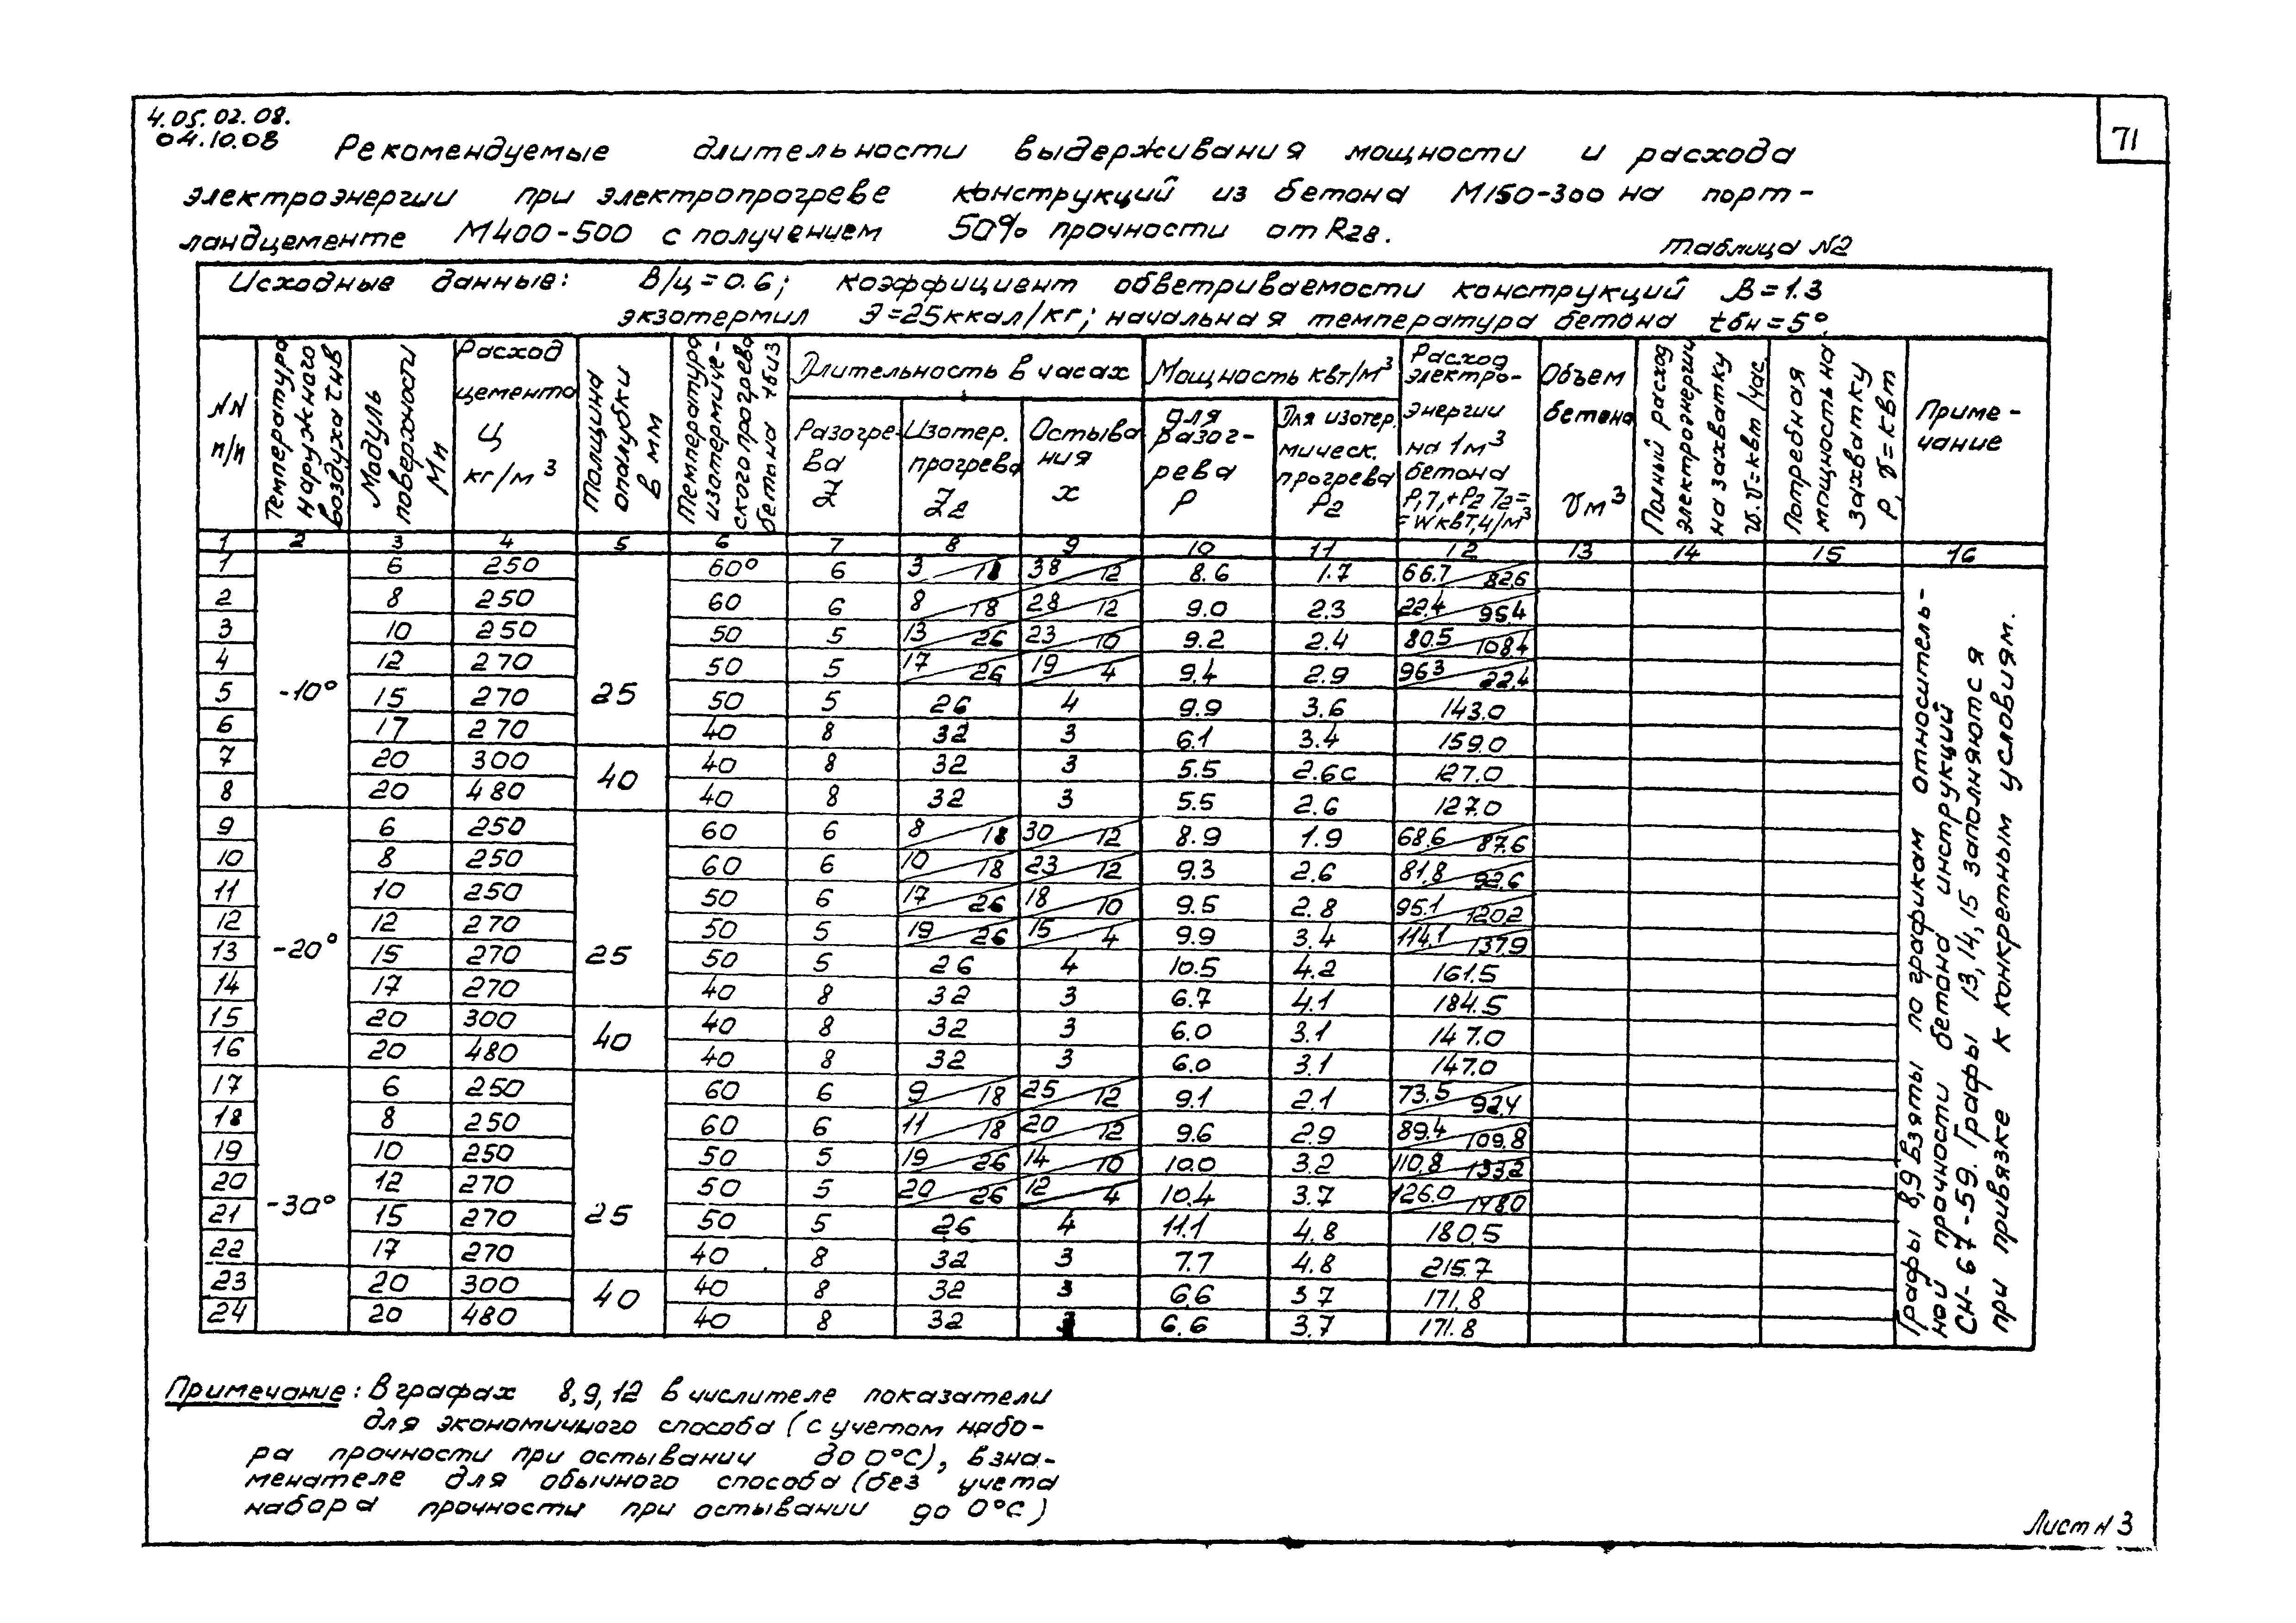 4.05.02.08.
04.10.08
71
Рекомендуемые длительности выдерживания мощности и расхода
электроэнергии при электропрогреве конструкций из бетона М150-300 на порт-
ландцементе М400-500 с получением 50% прочности от R28.
Таблица №2
Исходные данные: В/ц=0.6; коэффициент обветриваемости конструкций β=1.3
экзотермия Э=25ккал/кг; начальная температура бетона tбн=5°.
NN п/п
Температура наружного воздуха tнв
Модуль поверхности Мп
Расход цемента Ц кг/м³
Толщина опалубки в мм
Температура изотермиче-ского прогрева бетона tбиз
Длительность в часах
Разогре-ва
Изотер. прогрева
Остыва ния x
Мощность квт/м³
Для разог-рева Р
Для изотер. мическ. прогрева Р2
Расход электро-энергии на 1м³ бетона
Р,7,+Р2 72= =Wквт,ч/м³
Объем бетона
Vм³
Полный расход электроэнергии на захватку w.V=квт/час.
Потребная мощность на захватку Р, V=квт
Приме-чание
1 2 3 4 5 6 7 8 9 10 11 12 13 14 15 16
-10° 25
1 6 250 60° 6 3/18 38/12 8.6 1.7 66.7/82.6
2 8 250 60 6 8/18 28/12 9.0 2.3 22.4/95.4
3 10 250 50 5 13/26 23/10 9.2 2.4 80.5/108.4
4 12 270 50 5 17/26 19/4 9.4 2.9 963/22.4
5 15 270 50 5 26 4 9.9 3.6 143.0
6 17 270 40 8 32 3 6.1 3.4 159.0
40
7 20 300 40 8 32 3 5.5 2.6с 127.0
8 20 480 40 8 32 3 5.5 2.6 127.0
-20° 25
9 6 250 60 6 8/18 30/12 8.9 1.9 68.6/87.6
10 8 250 60 6 10/18 23/12 9.3 2.6 81.8/92.6
11 10 250 50 6 17/26 18/10 9.5 2.8 95.1/120.2
12 12 270 50 5 19/26 15/4 9.9 3.4 114.1/137.9
13 15 270 50 5 26 4 10.5 4.2 161.5
14 17 270 40 8 32 3 6.7 4.1 184.5
40
15 20 300 40 8 32 3 6.0 3.1 147.0
16 20 480 40 8 32 3 6.0 3.1 147.0
-30° 25
17 6 250 60 6 9/18 25/12 9.1 2.1 73.5/92.4
18 8 250 60 6 11/18 20/12 9.6 2.9 89.4/109.8
19 10 250 50 5 19/26 14/10 10.0 3.2 110.8/133.2
20 12 270 50 5 20/26 12/4 10.4 3.7 126.0/148.0
21 15 270 50 5 26 4 11.1 4.8 180.5
22 17 270 40 8 32 3 7.7 4.8 215.7
40
23 20 300 40 8 32 3 6.6 3 7 171.8
24 20 480 40 8 32 3 6.6 3.7 171.8
Графы 8,9 взяты по графикам относитель-
ной прочности бетона инструкций
СН-67-59. Графы 13, 14, 15 заполняются
при привязке к конкретным условиям.
Примечание: В графах 8,9,12 в числителе показатели
для экономичного способа (с учетом набо-
ра прочности при остывании до 0°С), в зна-
менателе для обычного способа (без учета
набора прочности при остывании до 0°С)
Лист N 3